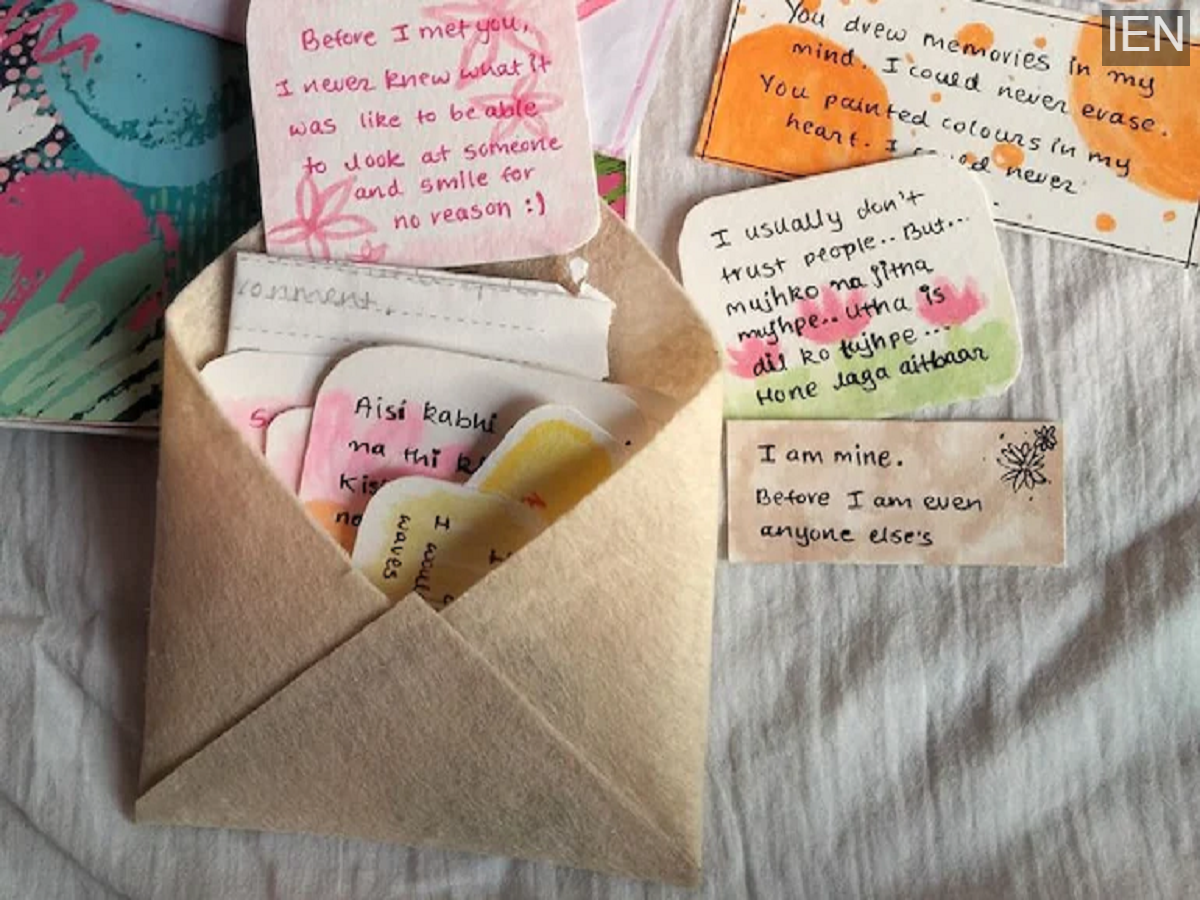 IEN
Before I met you,
I never knew what it
was like to be able
to look at someone
and smile for
no reason :)
You drew memories in my
mind. I could never erase.
You painted colours in my
heart. I never
I usually don't
trust people.. But...
mujhko na jitna
mujhpe.. Utna is
dil ko tujhpe ...
Hone laga aitbaar
I am mine.
Before I am even
anyone else's
Aisi kabhi
na thi
no
I
waves